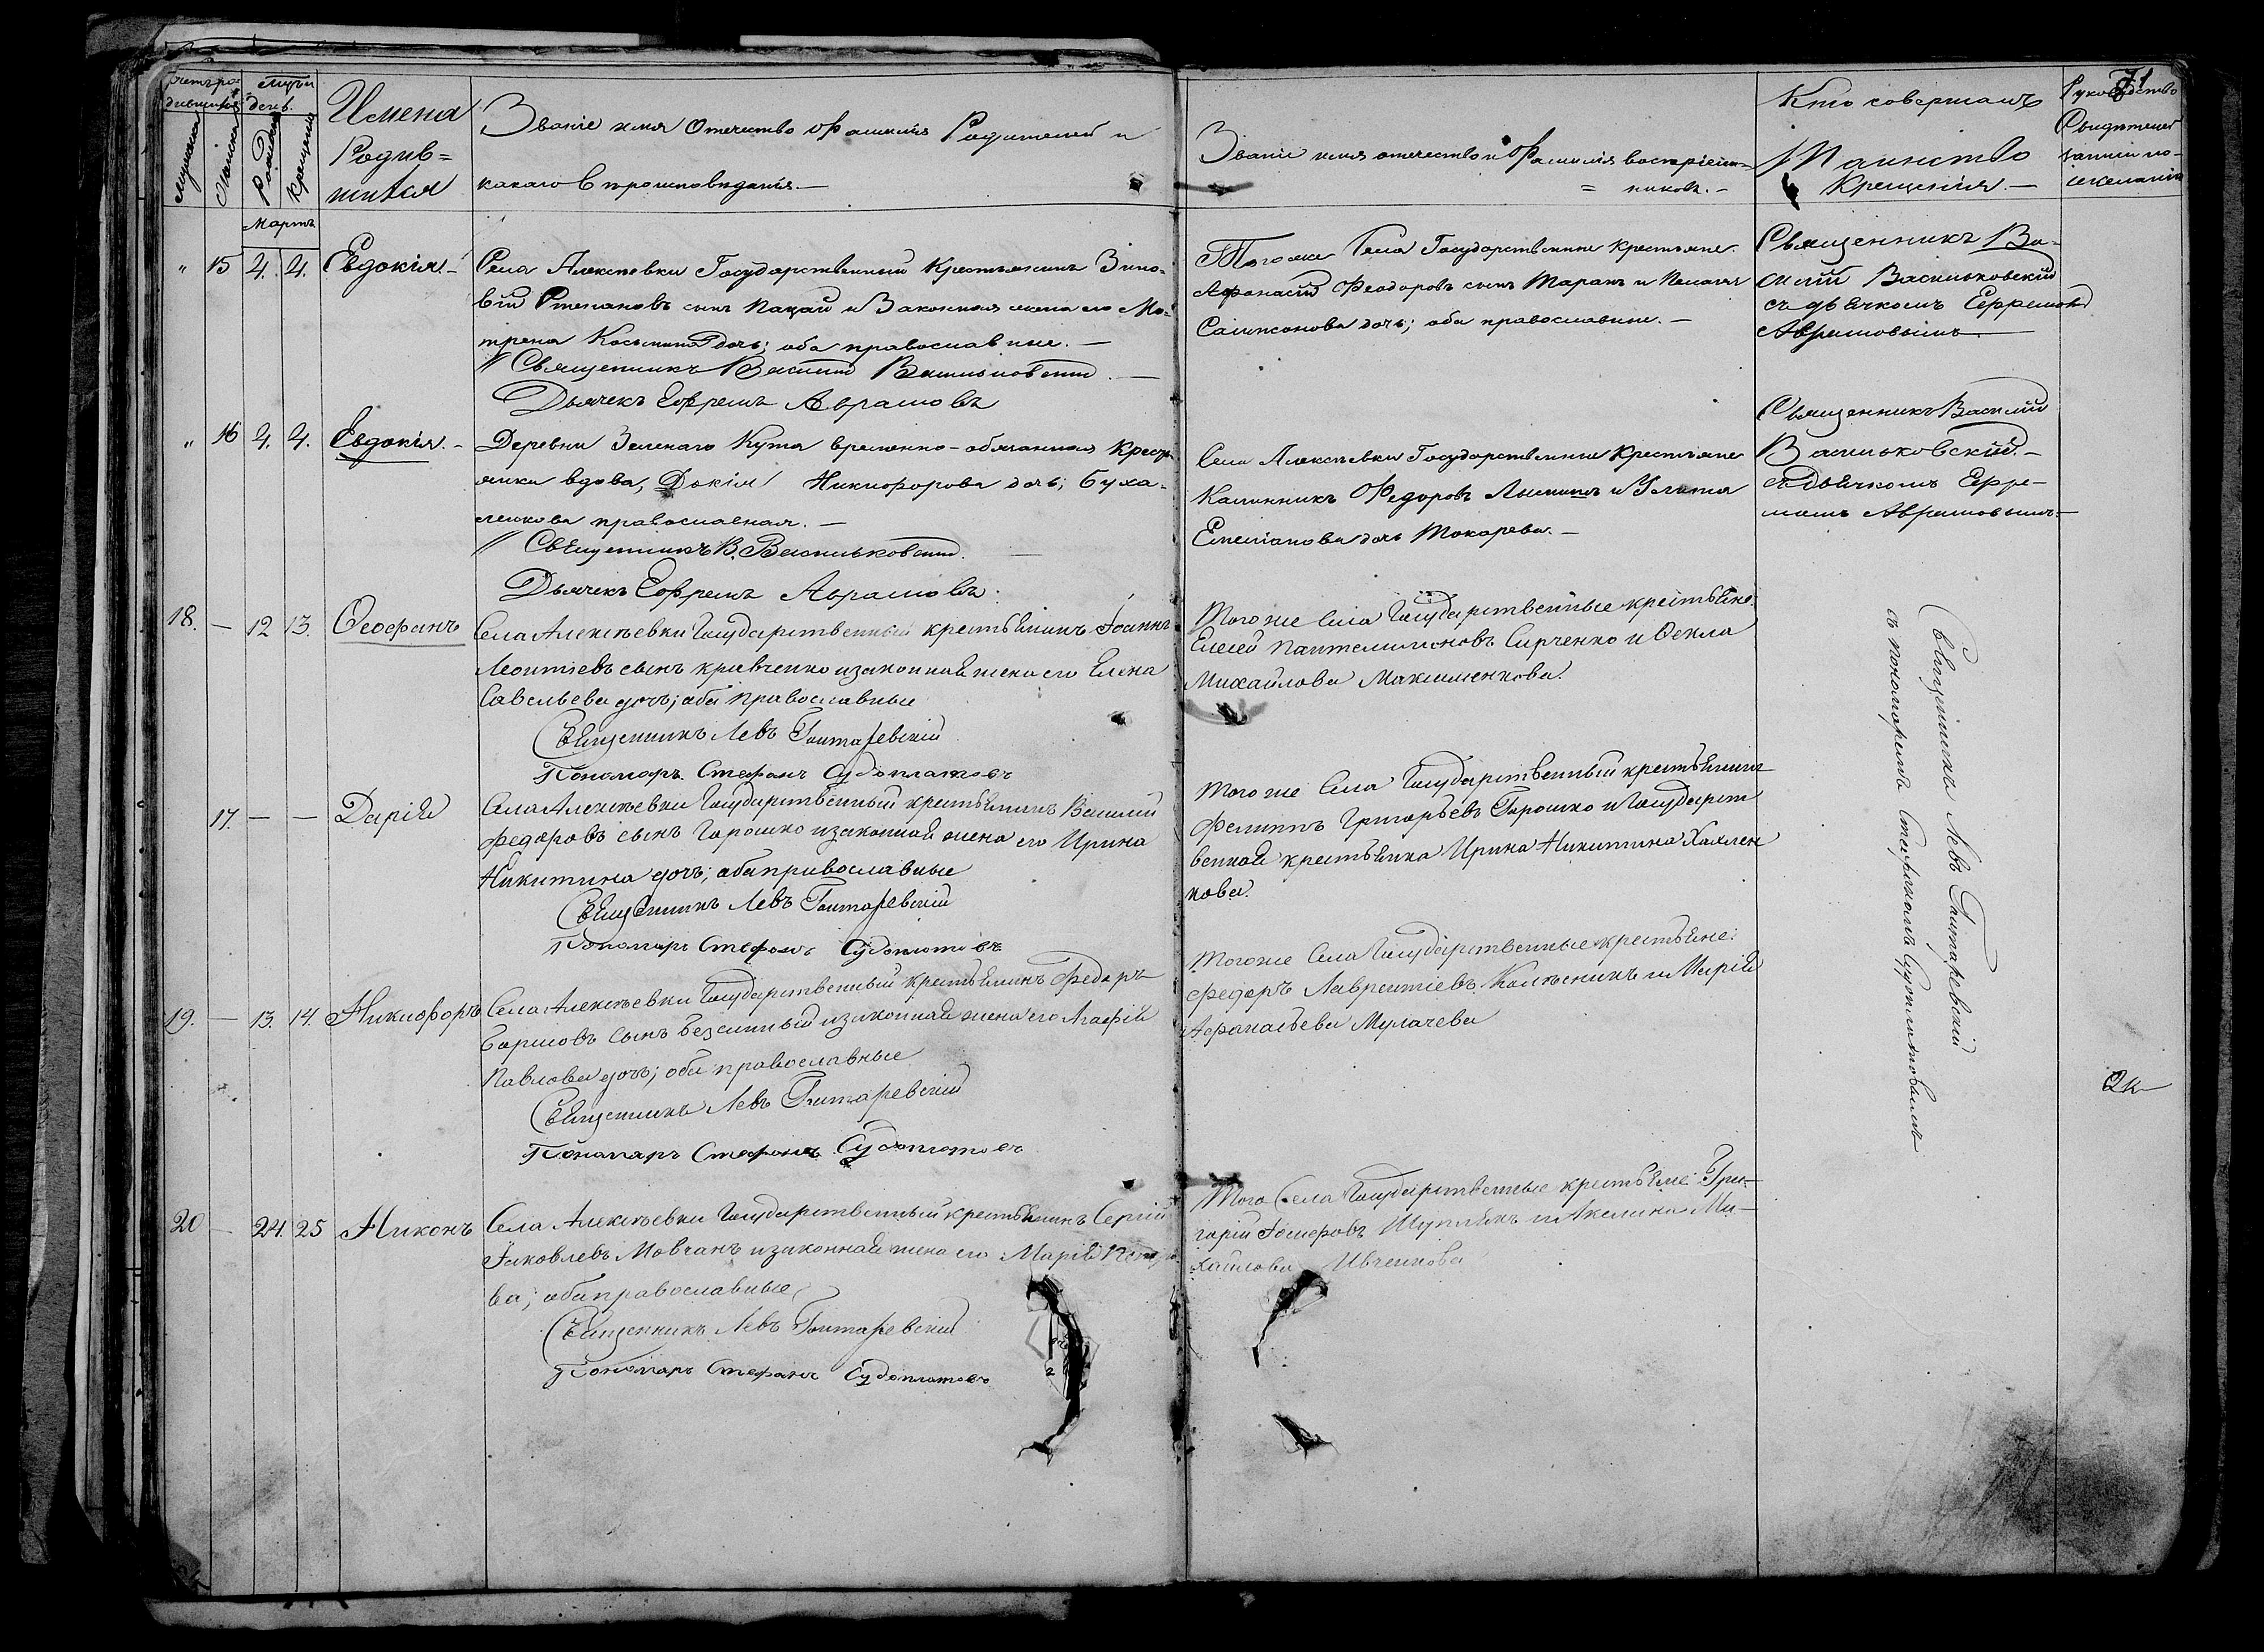 71
Счетъ ро-
дившихся
Мужска
Женска
Мѣсяцъ
день.
Рожденія
Крещенія
Имена
Родив=
шихся
Званіе имя Отечество и Фамилія Родителей и
какаго Вѣроисповѣданія.—
Званіе имя отечество и Фамилія воспріем=
= никовъ.-
Кто совершалъ
Таинство
Крещенія.—
Рукоприкладство
Свидѣтелей
записи по
желанію
Мартъ
„ 15 4. 4. Евдокія.-
Села Алексѣевки Государственный Крестьянинъ Зино-
вій Степановъ сынъ Пацай и Законная жена его Ма-
трена Косьмина дочь; оба православные.—
Священникъ Василій Васильковскій.—
Дьячекъ Ефремъ Аврамовъ
Тогоже Села Государственные Крестьяне
Афонасій Феодоровъ сынъ Таранъ и Пелагія
Самсонова дочь; оба православные.—
Священникъ Ва-
силій Васильковскій
съ дьячкомъ Ефремомъ
Аврамовымъ.
„ 16 4. 4. Евдокія.-
Деревни Зеленаго Кута временно-обязанная Кресть-
янка вдова, Докія Никифорова дочь; Буха-
ленкова православная.—
Священникъ В. Васильковскій.—
Дьячекъ Ефремъ Аврамовъ.
Села Алексѣевки Государственные Крестьяне
Калинникъ Федоровъ и Улита
Емеліанова дочь Токарева.—
Священникъ Василій
Васильковскій.—
съ Дьячкомъ Ефре-
момъ Аврамовымъ.—
18. — 12 13. Ѳеофанъ
Села Алексѣевки Государственный крестьянинъ Іоаннъ
Леонтіевъ сынъ Кравченко и законная жена его Елена
Савельева дочь; оба православные
Священникъ Левъ Гонтаревскій
Пономарь Стефанъ Судоплатовъ
Тогоже села Государственные крестьяне:
Елисей Пантелимоновъ Сирченко и Ѳекла
Михайлова Максименкова.
Священникъ Левъ Гонтаревскій
съ пономаремъ Стефаномъ Судоплатовымъ
17. — — Дарія
Села Алексѣевки Государственный крестьянинъ Василій
Федоровъ сынъ Горошко и законная жена его Ирина
Никитина дочь; оба православные
Священникъ Левъ Гонтаревскій
Пономарь Стефанъ Судоплатовъ
Тогоже Села Государственный крестьянинъ
Филиппъ Григорьевъ Горошко и Государст
венная крестьянка Ирина Никитина Хахлен
кова.
19. — 13. 14. Никифоръ
Села Алексѣевки Государственный крестьянинъ Федоръ
Борисовъ сынъ и законная жена его Агафія
Павлова дочь; оба православные
Священникъ Левъ Гонтаревскій
Пономарь Стефанъ Судоплатовъ
Тогоже Села Государственные крестьяне:
Федоръ Лаврентіевъ Колѣсникъ и Марія
Афонасьева Мулачева
2к
20 — 24. 25 Никонъ
Села Алексѣевки Государственный крестьянинъ Сергій
Яковлевъ Мовчанъ и законная жена его Марія Петро
ва; оба православные
Священникъ Левъ Гонтаревскій
Пономарь Стефанъ Судоплатовъ
Того Села Государственные крестьяне: Гри-
горій Іосифовъ и Акелина Ми-
хайлова Ивченкова